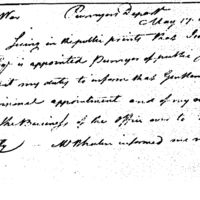 War Purveyors Depart
May 17
Seeing in the public prints that
is appointed Purveyor of public
it my duty to inform that Gentleman
sional appointment and of my
the Business of the Office over to
Mr Whelen informed me